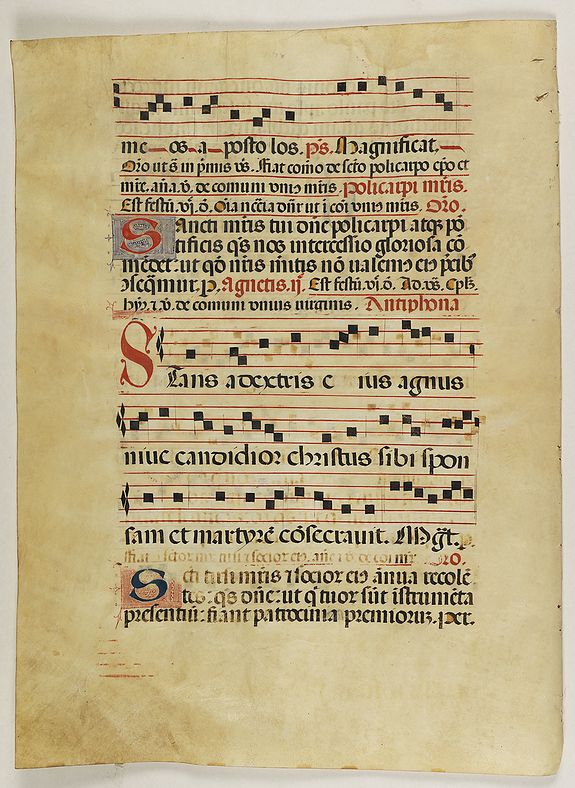 me os a posto los. ps. Magnificat.
Oro ut s̄ in p̄mis vs. fiat com̄o de scto policarpo ep̄o et
mr̄e. an̄a. v̄. de comuni unis mr̄is. Policarpi mr̄is.
Est festū. vj. ō. Oro.
Sancti mr̄is tui dn̄e policarpi atq; pō
tificis qs nos intercessio gloriosa cō
mēdet: ut qd̄ nr̄is mr̄itis nō ualem⁹ ei⁹ p̄cib⁹
ꝯseq̄mur. p. Agnetis. ij. Est festū. vj. ō. Ad. vs. Cp̄l.
hȳ. ⁊ v̄. de comuni unius uirginis. Antiphona
Stans a dextris e ius agnus
niue candidior christus sibi spon
sam et martyrē cōsecrauit. Mḡt.
Oro.
Scti tui mr̄is ⁊ socior ei⁹ ānua recolē
tes: qs dn̄e: ut q̄ tuor sūt īstrumēta
presentiū: fiant patrocinia premiorum. Per.